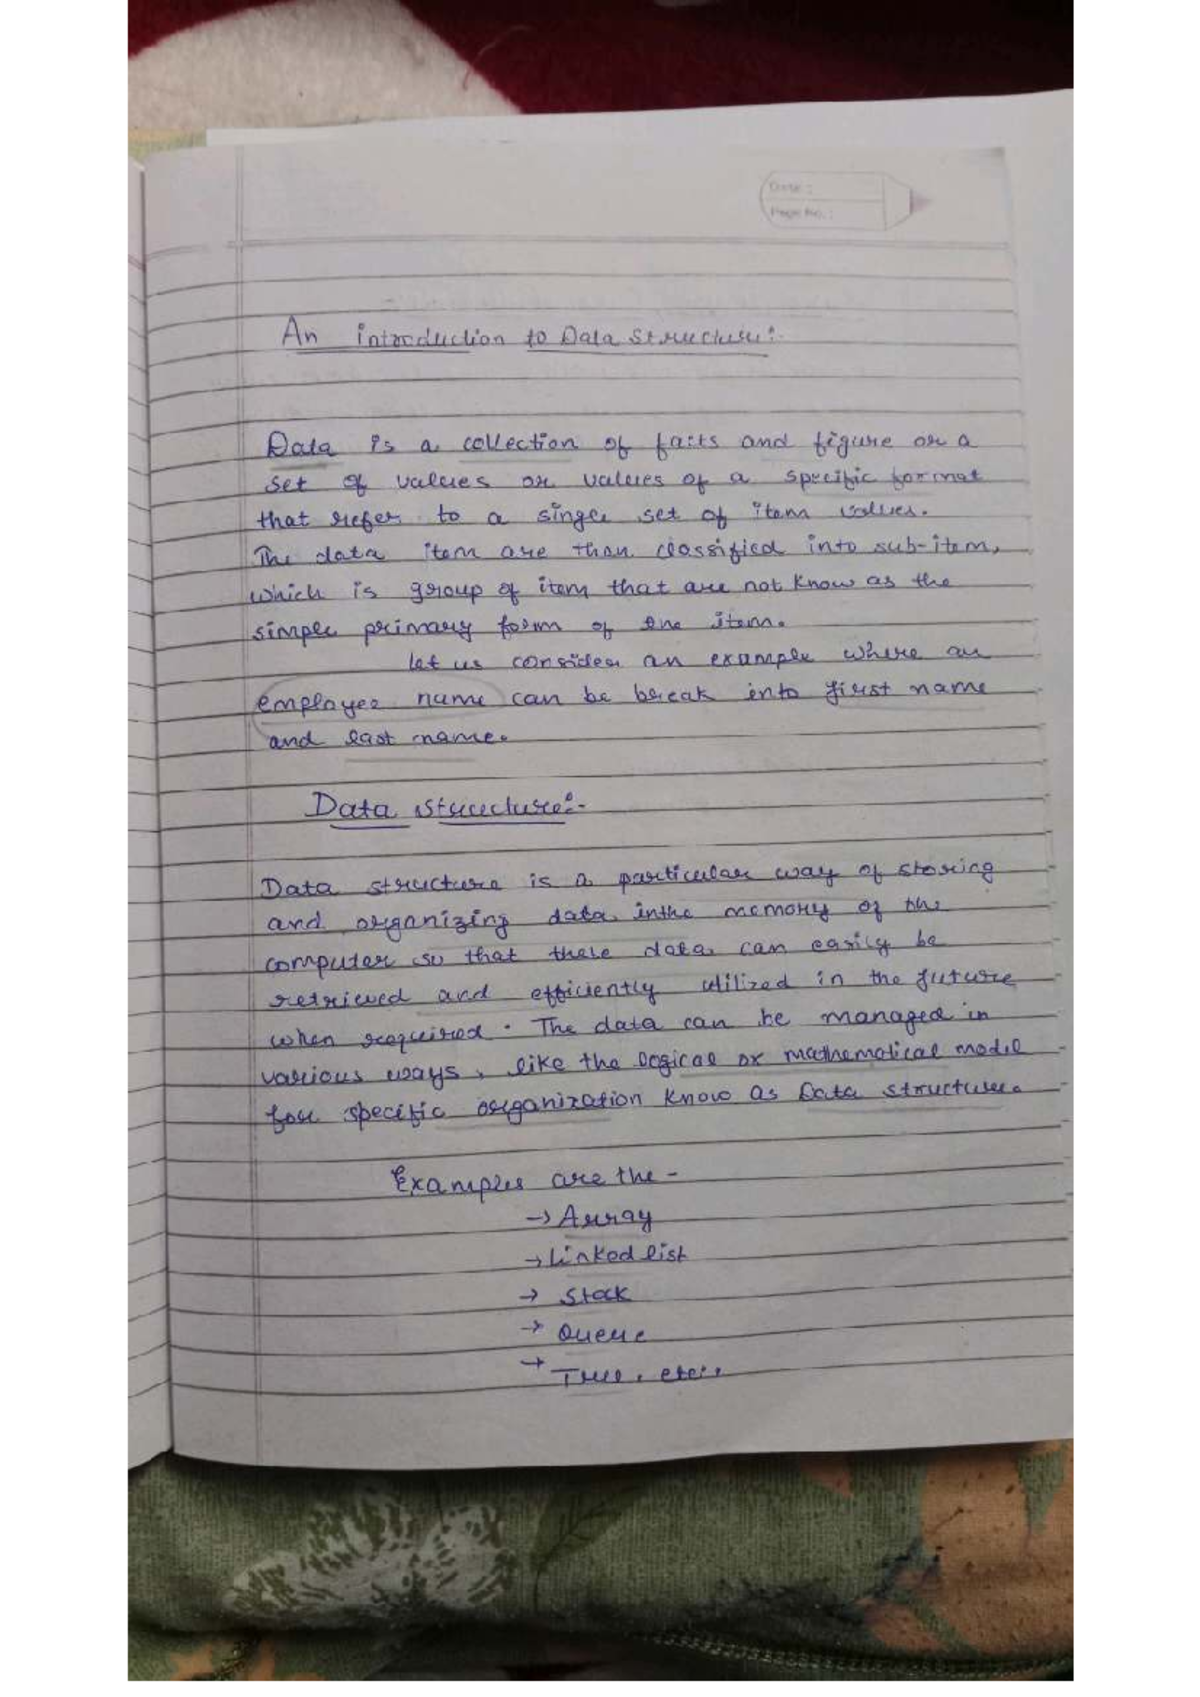 Date :
Page No. :
An introduction to Data Structure:-
Data is a collection of facts and figure or a
set of values or values of a specific format
that refer to a singel set of item values.
The data item are than classified into sub-item,
which is group of item that are not know as the
simple primary form of the item.
let us consider an example where an
employee name can be break into first name
and last name.
Data structure:-
Data structure is a particular way of storing
and organizing data inthe memory of the
computer so that these data can easily be
retrieved and efficiently utilized in the future
when required. The data can be managed in
various ways, like the logical or mathematical model
for specific organization know as Data structure.
Examples are the -
→ Array
→ Linked list
→ Stack
→ Queue
→ Tree, etc..